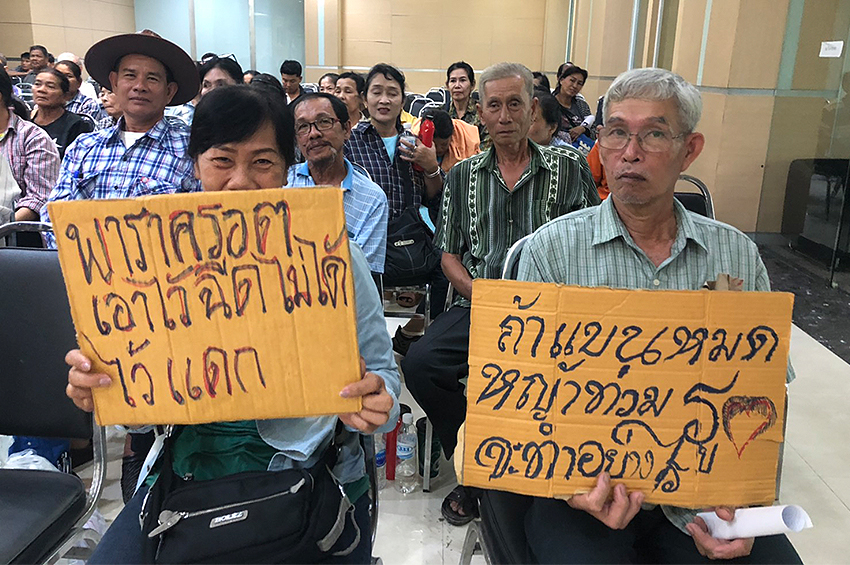 พาราครอต
เอาไว้ฉีดไม่ได้
ไว้แดก
ถ้าแบนหมด
หญ้าท่วมรู
จะทำอย่างไร